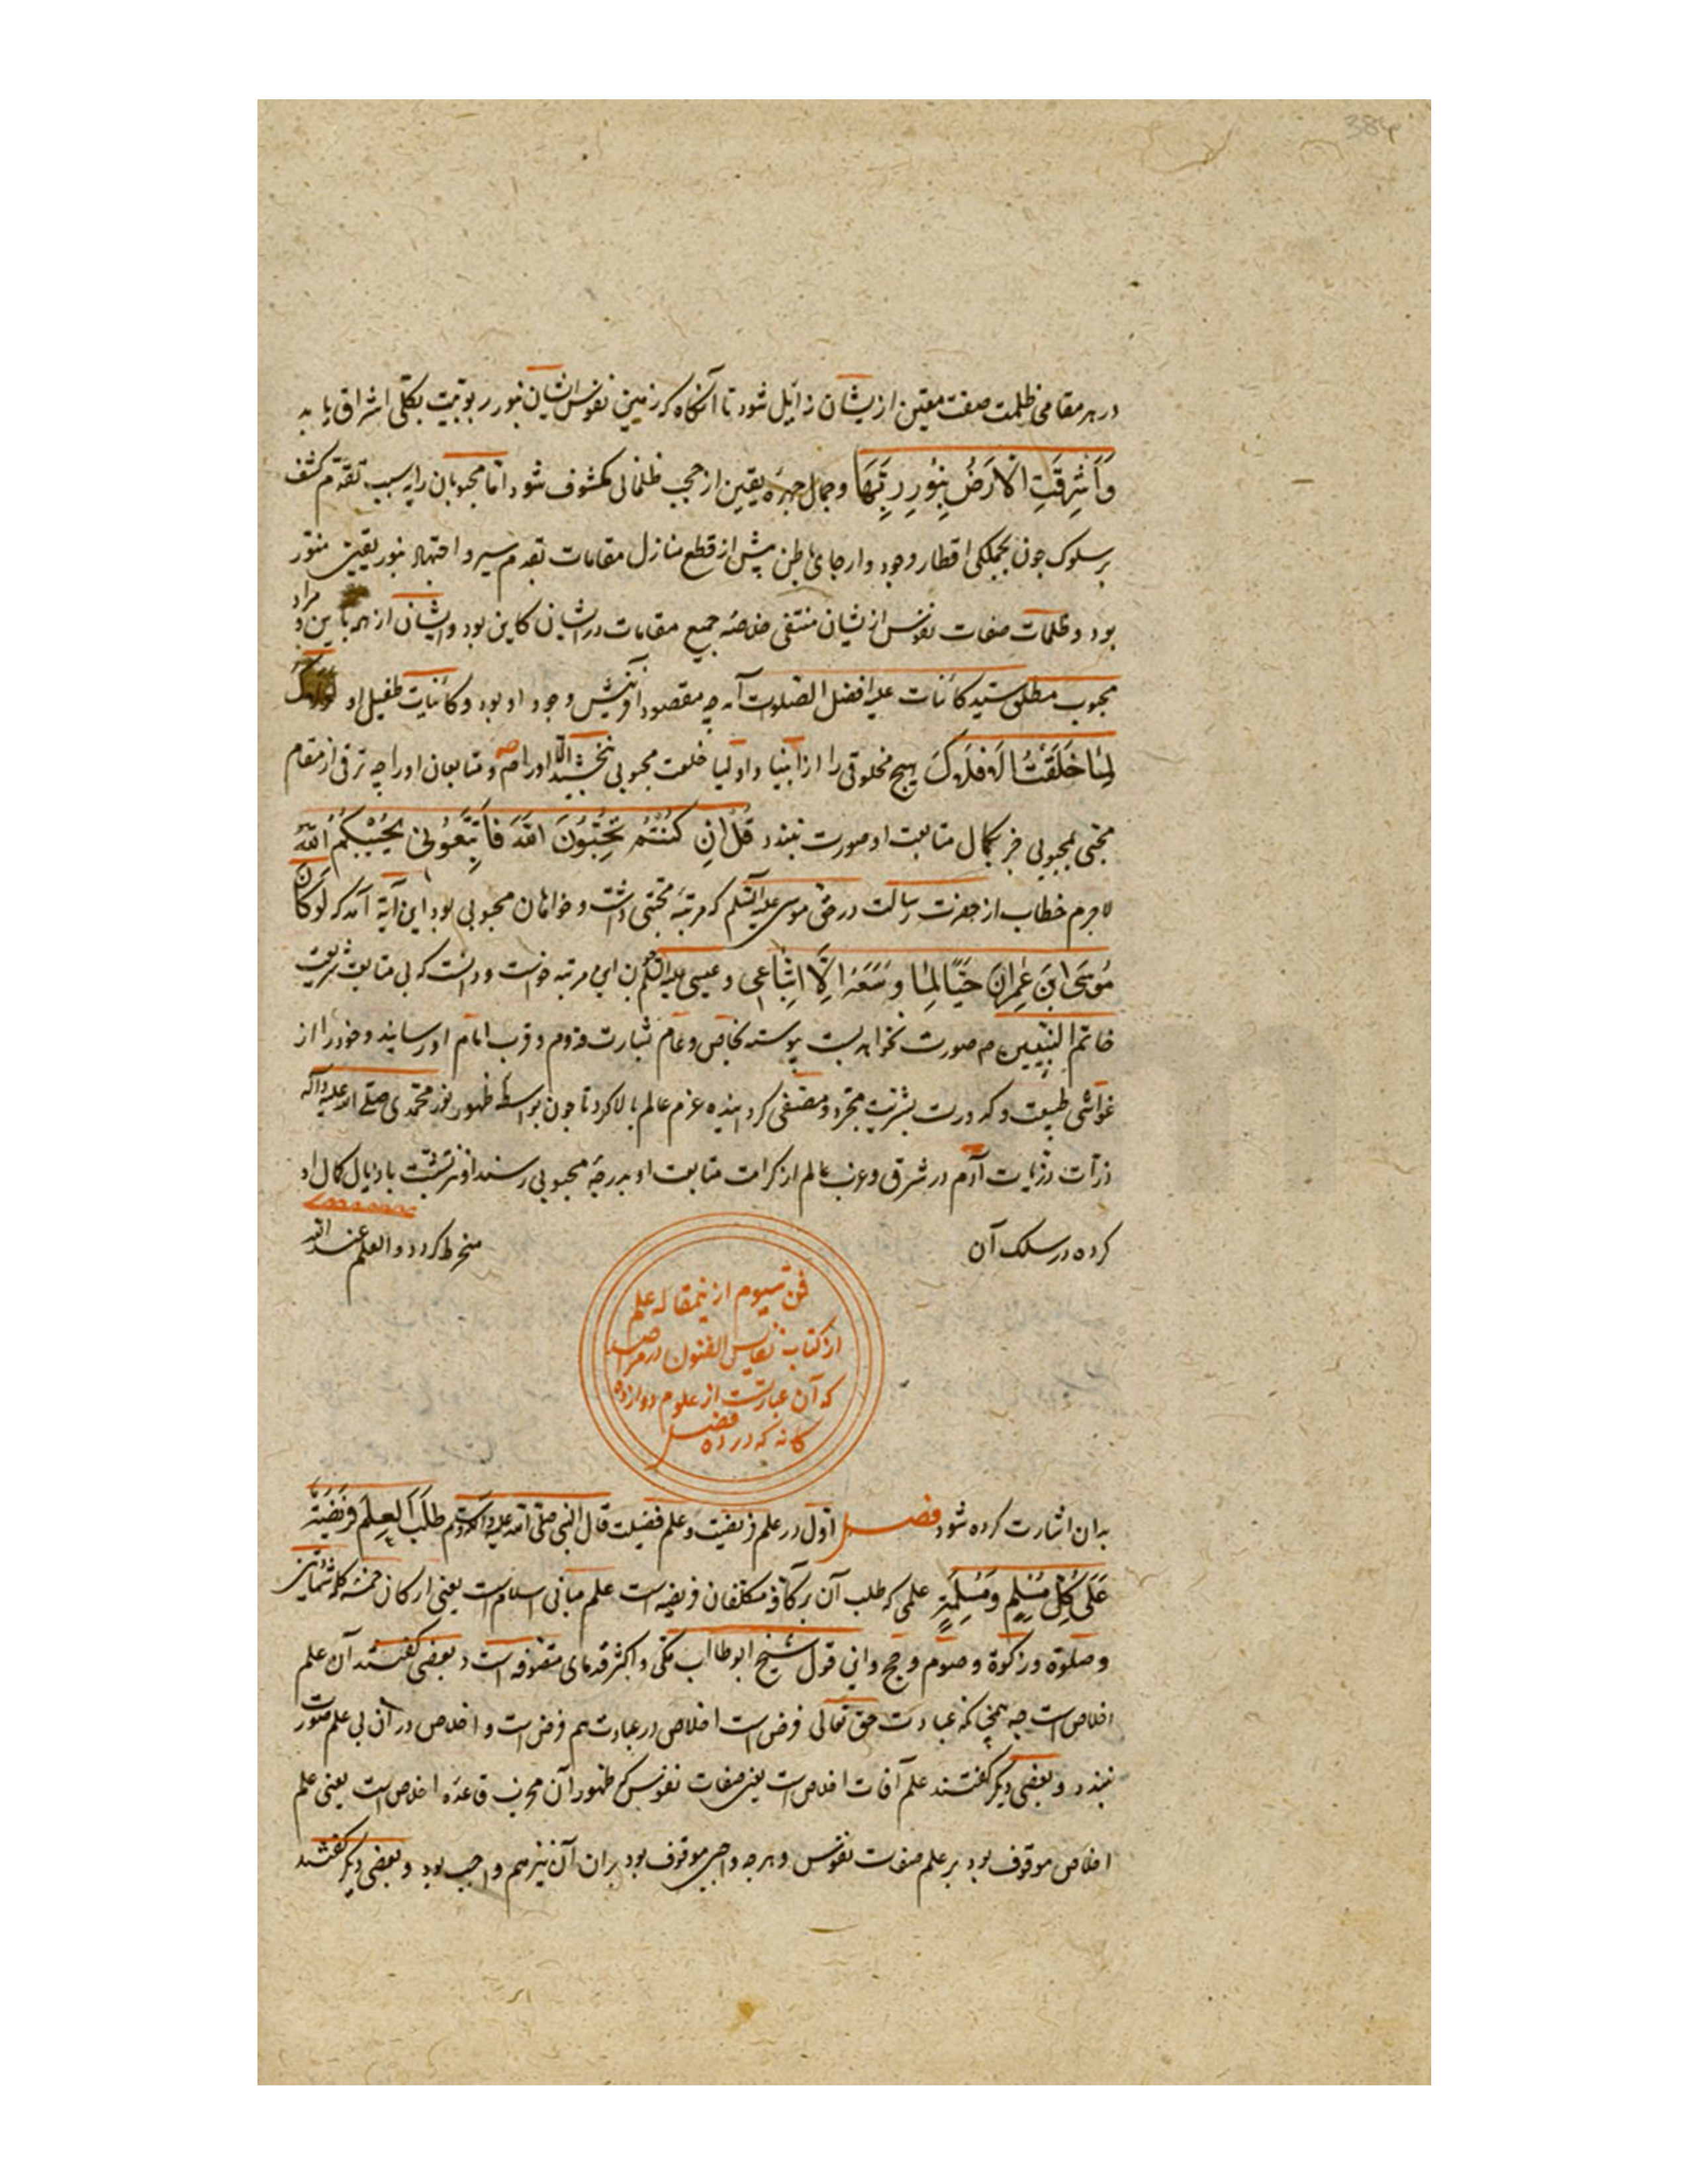 384
در هر مقامی ظلمت صفت معین از یشان زایل شود تا آنکاه که زمین نفوس ایشان بنور ربوبیت بکلی اشراق یابد
وَاَشرَقَتِ الْاَرَضُ بِنُورِ رَبِّهَا وجمال چهرۀ یقین از حجب ظلمانی مکشوف شود اما محبوبان را بسبب تقدم کشف
بر سلوک جون بجملکی اقطار وجود وارجای باطن پیش از قطع منازل مقامات بقدم سیر و اجتهاد بنور یقین منور
بود وظلمات صفات نفوس از یشان منتفی خلاصۀ جمیع مقامات در ایشان کاین بود وایشان از همه باین و مراد
محبوب مطلق سید کائنات علیه افضل الصلوات آمد چه مقصود از آفرینش وجود او بود وکائنات طفیل او لولاک
لَمَا خَلَقْتُ الافلاکَ هیچ مخلوقی را از انبیا واولیا خلعت محبوبی نبخشید الا اورا صم و متابعان اورا چه ترقی از مقام
محبی بمحبوبی جز بکمال متابعت او صورت نبندد قُلْ اِنِ کُنْتُمْ تُحِبُّونَ اللهَ فَاتَّبِعُونی یُحْبِبْکُمُ اللهُ
لاجرم خطاب از حضرت رسالت در حق موسی علیه السلم که مرتبۀ محبی داشت و خواهان محبوبی بود این آیة آمد که لَوکَانَ
مُوسَی ابنَ عِمرانَ حَیًّا لَمَا وَسَعَهُ اِلّا اتِّبَاعِی و عیسی علیه السلم جون این مرتبه خواست ودانست که بی متابعت شریعت
خاتم النبیین عم صورت نخواهد بست پیوسته بخاص وعام بشارت قدوم وقرب امام او رسانید وخود را از
غواشی طبیعت وکدورت بشریت مجرد ومصفی کردانیده عزم عالم بالا کرد تا جون بواسطۀ ظهور نور محمدی صلی الله علیه وآله
ذرات ذریات آدم در شرق وغرب عالم از کرامت متابعت او بدرجۀ محبوبی رسند او نیز تشبث باذیال کمال او
کرده در سلک آن منخرط کردد والعلم عند الله
فن سیوم از نمقاله علم
از کتاب نفایس الفنون در مراصد
که آن عبارتست از علوم دوازده
کانه که در ده فصل
بدان اشارت کرده شود فصل اول در علم فریضت وعلم فضیلت قال النبی صلی الله علیه وآله وسلم طَلَبُ العِلْمِ فَریضَةٌ
عَلَی کُلِّ مُسْلِمٍ وَمُسْلِمَةٍ علمی که طلب آن بر کافۀ مکلفان فریضه است علم مبانی اسلام است یعنی ارکان خمسه کلمۀ شهادتین
وصلوة وزکوة وصوم وحج واین قول شیخ ابوطالب مکی و اکثر قدمای متصوفه است و بعضی کفتند آن علم
اخلاص است چه همچنانکه عبادت حق تعالی فرض است اخلاص در عبادت هم فرض است و اخلاص در آن بی علم صورت
نبندد و بعضی دیکر کفتند علم آفات اخلاص است یعنی صفات نفوس که ظهور آن مخرب قاعدۀ اخلاص است یعنی علم
اخلاص موقوف بود بر علم صفات نفوس وهرچه واجبی موقوف بود بران آن نیز هم واجب بود و بعضی دیکر کفتند